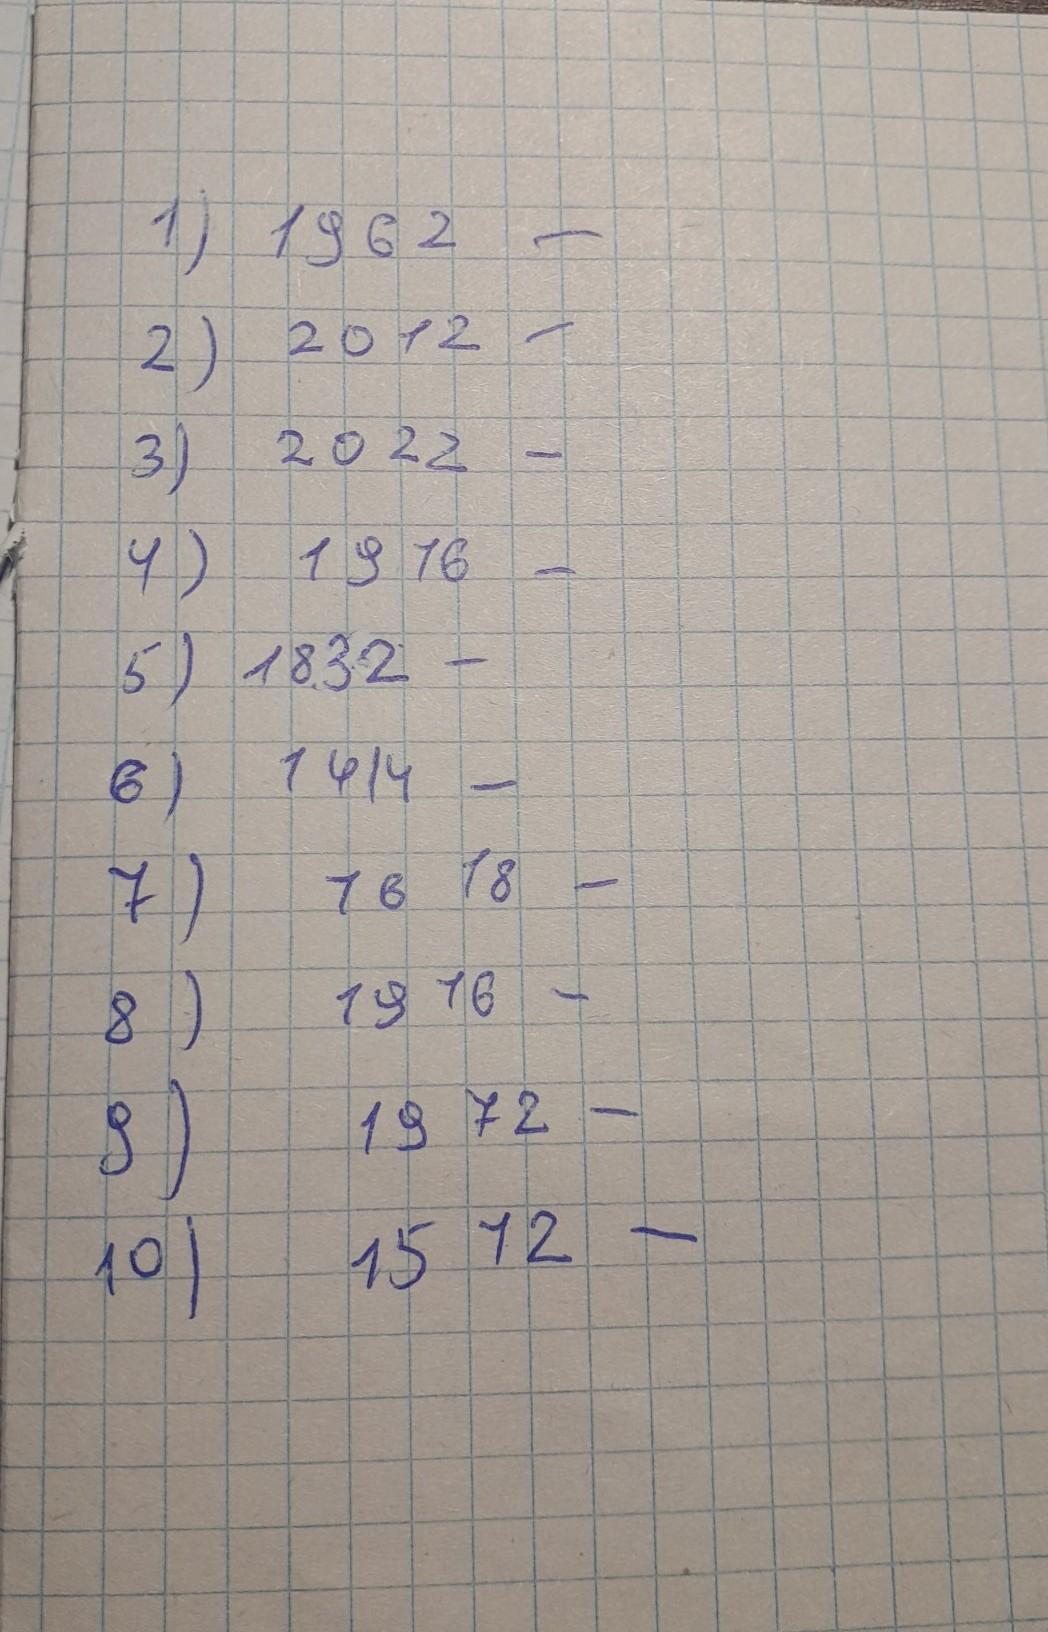 1) 1962 -
2) 2012 -
3) 2022 -
4) 1916 -
5) 1832 -
6) 1414 -
7) 16 18 -
8) 19 16 -
9) 19 72 -
10) 15 12 -